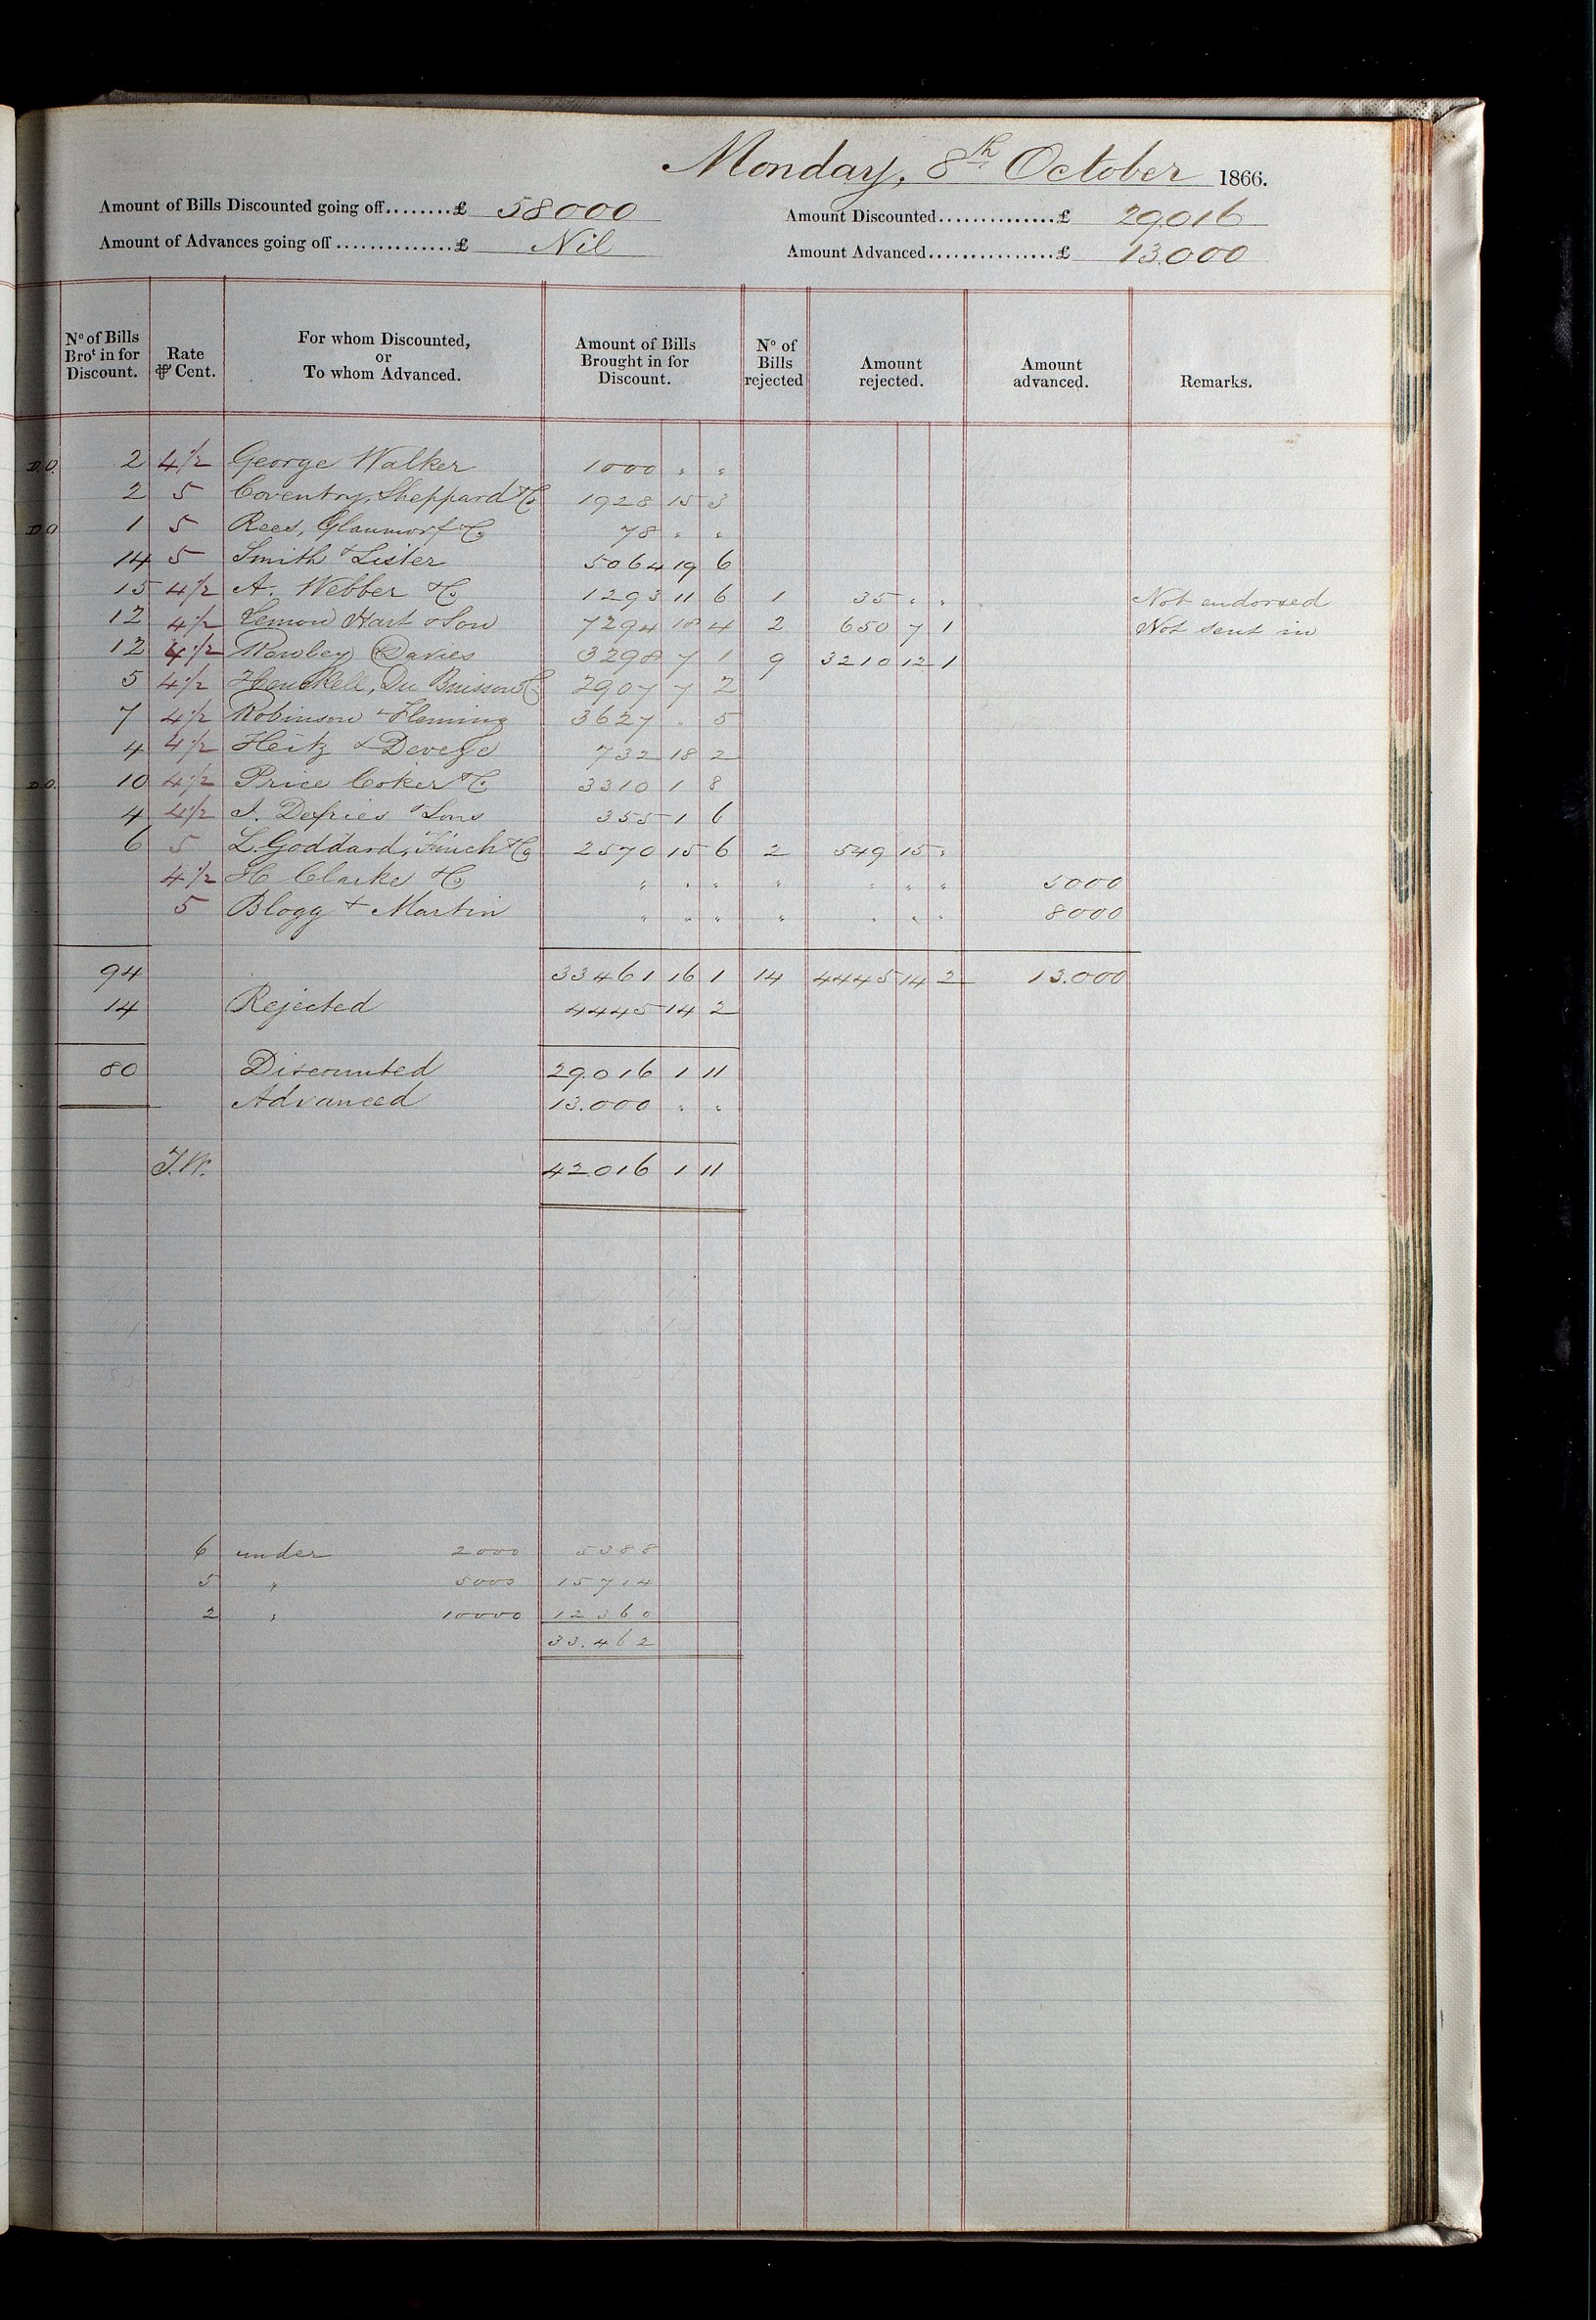 Monday, 8th October 1866.
Amount of Bills Discounted going off........£ 58000
Amount Discounted..............£ 29,016
Amount of Advances going off..............£ Nil
Amount Advanced...............£ 13.000
No of Bills Brot in for Discount. Rate ⅌ Cent. For whom Discounted, or To whom Advanced. Amount of Bills Brought in for Discount. No of Bills rejected Amount rejected. Amount advanced. Remarks.
D.O. 2 4½ George Walker 1000 " "
2 5 Coventry, Sheppard & Co 1928 15 3
D.O. 1 5 Rees, & Co 78 " "
14 5 Smith & Lister 5064 19 6
15 4½ A. Webber & Co 1293 11 6 1 35 " " Not endorsed
12 4½ Lemon Hart & Son 7294 18 4 2 650 7 1 Not sent in
12 4½ Rowley Davies 3298 7 1 9 3210 12 1
5 4½ Henckell, Du Buisson & Co 2907 7 2
7 4½ Robinson & Fleming 3627 " 5
4 4½ Heitz & 732 18 2
D.O. 10 4½ Price Coker & Co 3310 1 8
4 4½ J. Defries & Sons 355 1 6
6 5 L. Goddard, Finch & Co 2570 15 6 2 549 15 "
4½ H Clarke & Co " " " " " " " 5000
5 Blogg & Martin " " " " " " " 8000
94 33461 16 1 14 4445 14 2 13.000
14 Rejected 4445 14 2
80 Discounted 29.016 1 11
Advanced 13.000 " "
J.W. 42.016 1 11
6 under 2000 5388
5 " 5000 15714
2 " 10000 12360
33.462